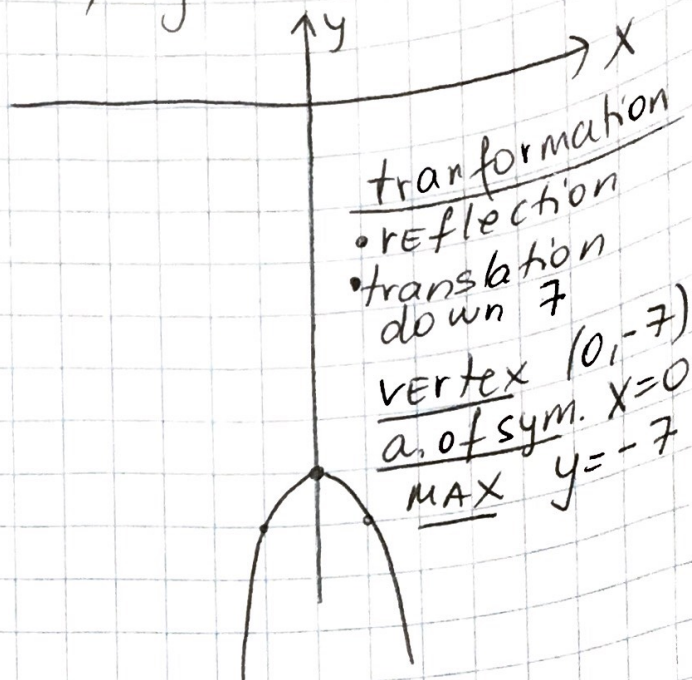 y
x
tranformation
• reflection
• translation
down 7
vertex (0,-7)
a. of sym. x=0
MAX y=-7